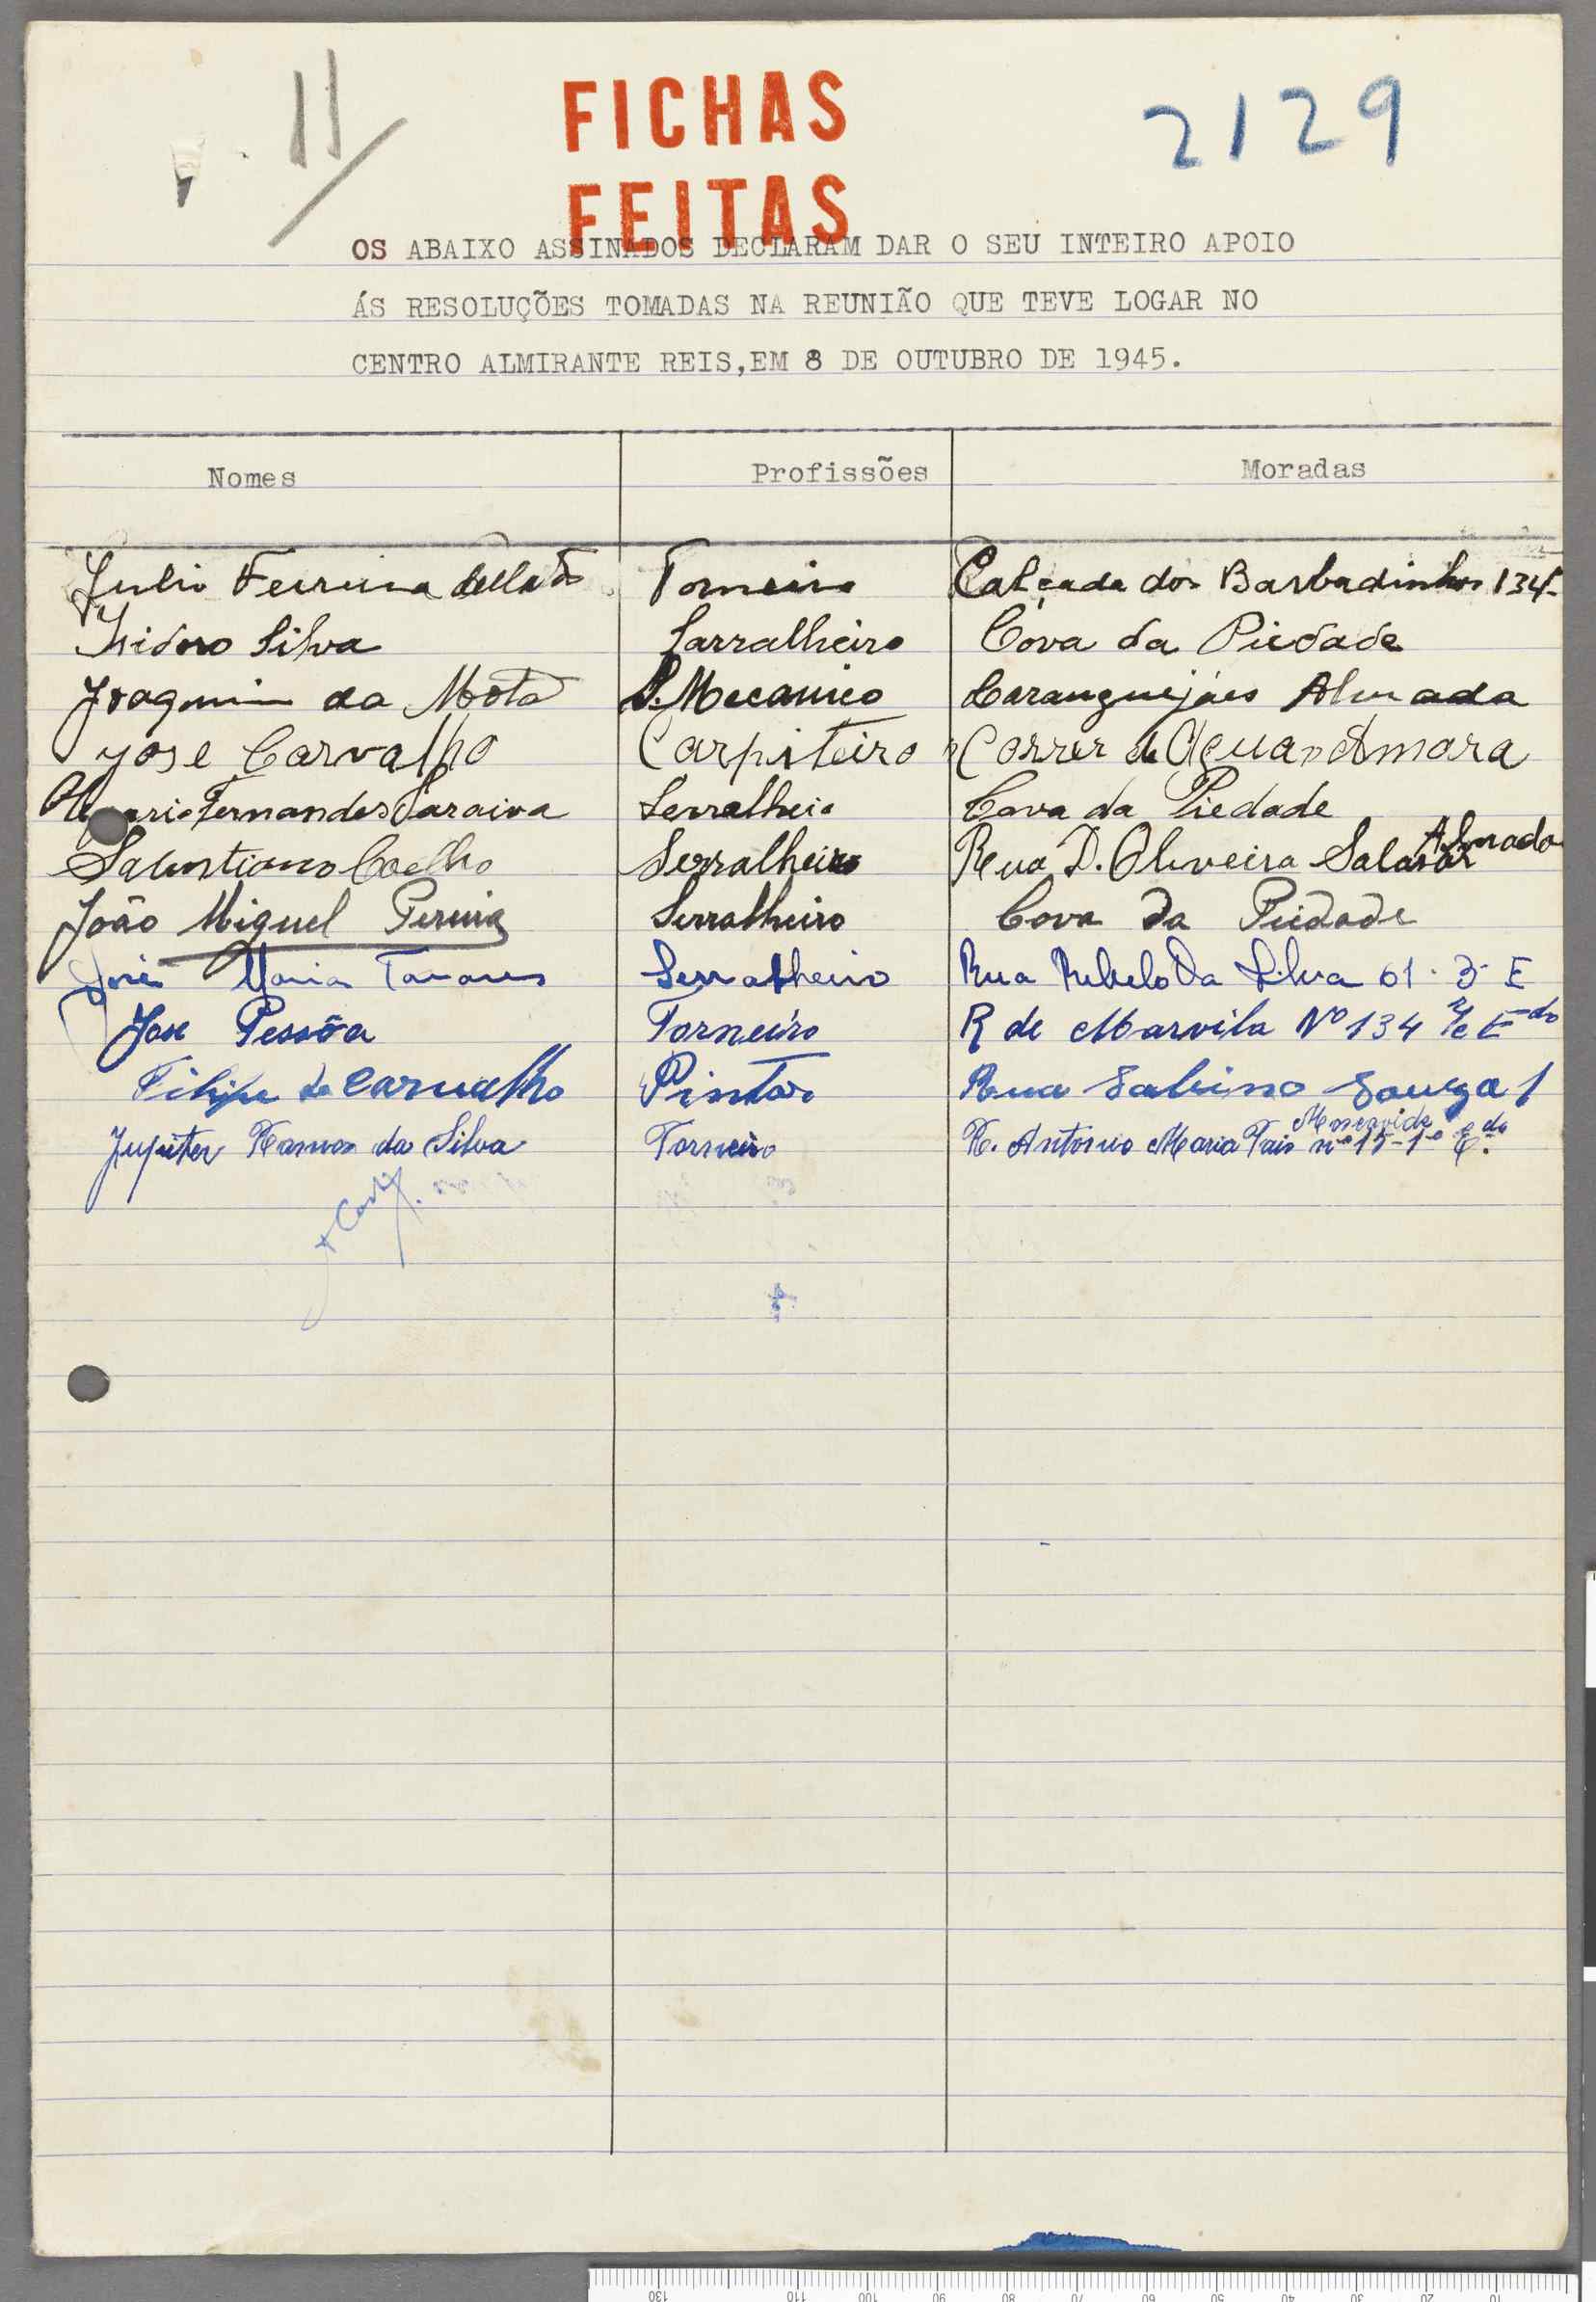 11
FICHAS
FEITAS
2129
OS ABAIXO ASSINADOS DECLARAM DAR O SEU INTEIRO APOIO
ÁS RESOLUÇÕES TOMADAS NA REUNIÃO QUE TEVE LOGAR NO
CENTRO ALMIRANTE REIS,EM 8 DE OUTUBRO DE 1945.
Nomes Profissões Moradas
Julio Ferreira Torneiro Calçada dos Barbadinhos 134
Isidoro Silva Sarralheiro Cova da Piedade
Joaquim da Mota S. Mecanico Caranguejais Almada
Jose Carvalho Carpiteiro Correr de Agua Amora
Fernandes Saraiva Serralheio Cova da Piedade
Salustiano Coelho Serralheiro Rua D. Oliveira Salazar Almada
João Miguel Pereira Serralheiro Cova da Piedade
José Maria Tavares Serralheiro Rua Rebelo Da Silva 61 - 3º E
Jose Pessôa Torneiro R de Marvila Nº 134 R/c Edo
Filipe de Carvalho Pintor Rua Sabino Souza 1
Jupiter Ramos da Silva Torneiro R. António Maria Pais nº 15-1º E.do Moscavide
130 110 100 90 80 70 60 50 40 30 20 10